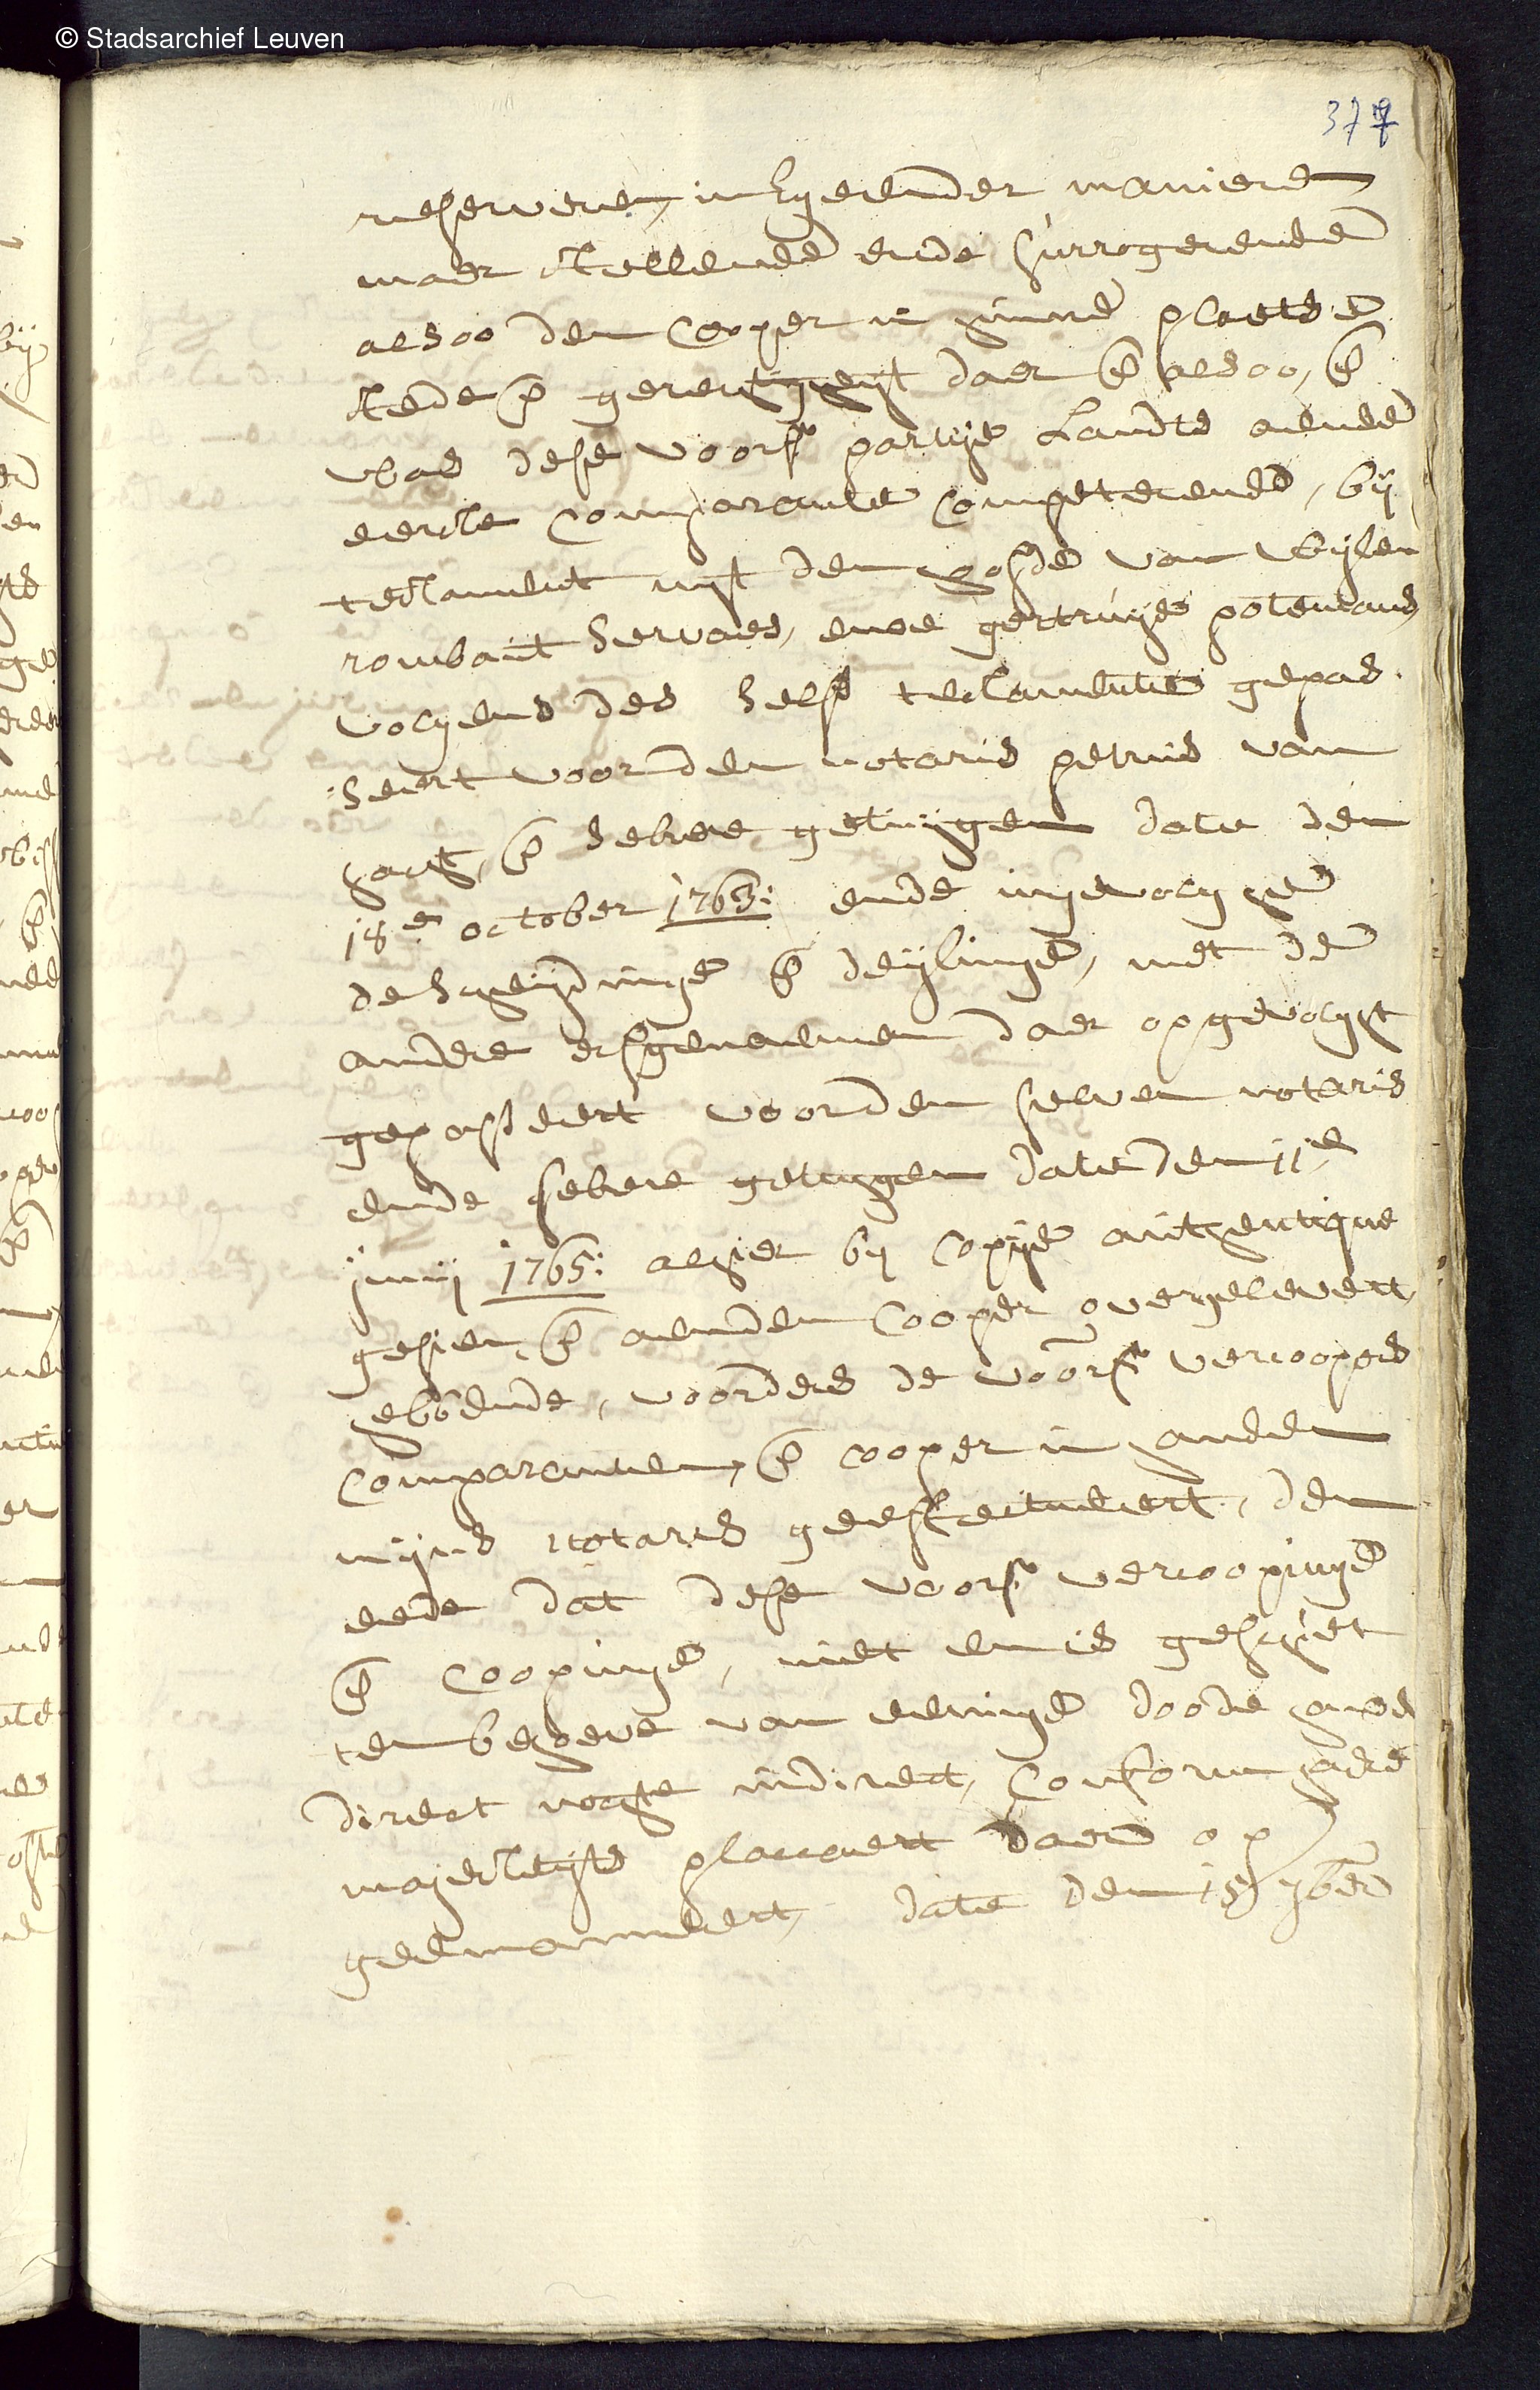 © Stadsarchief Leuven
377
reserveren, in egeender manieren
maer stellende ende surrogerende
alsoo den Cooper in hunne plaetse
stede en gerechticheyt daer en alsoo, en
was dese voors. partije Landts aende
eerste Comparante Competerende, bij
testament uyt den hoofde van wijlen
rombaut Servaes, ende gertruijde
volgens des selfs testamente gepas
seert voor den notaris petrus van
en sekere getuijgen date den
18e october 1763: ende ingevolge
de scheydinge en deijlinge, met de
andere erfgenaemen daer op gevolght
gepasseert voor den selven notaris
ende sekere getuygen date den 11e
junij 1765: alhier bij Copije authentique
gesien, en aen den Cooper overgelevert,
hebbende, voorders de voors. vercoopers
Comparanten, en cooper in handen
mijns notaris geaffirmeert, den
eede dat dese voors. vercoopinge
en Coopinge, niet en is geschiet
ten behoeve van eenige doode hand
direct nochte indirect, Conform haere
majesteyts placcaert daer op
geëmaneert, date den 15 7ber